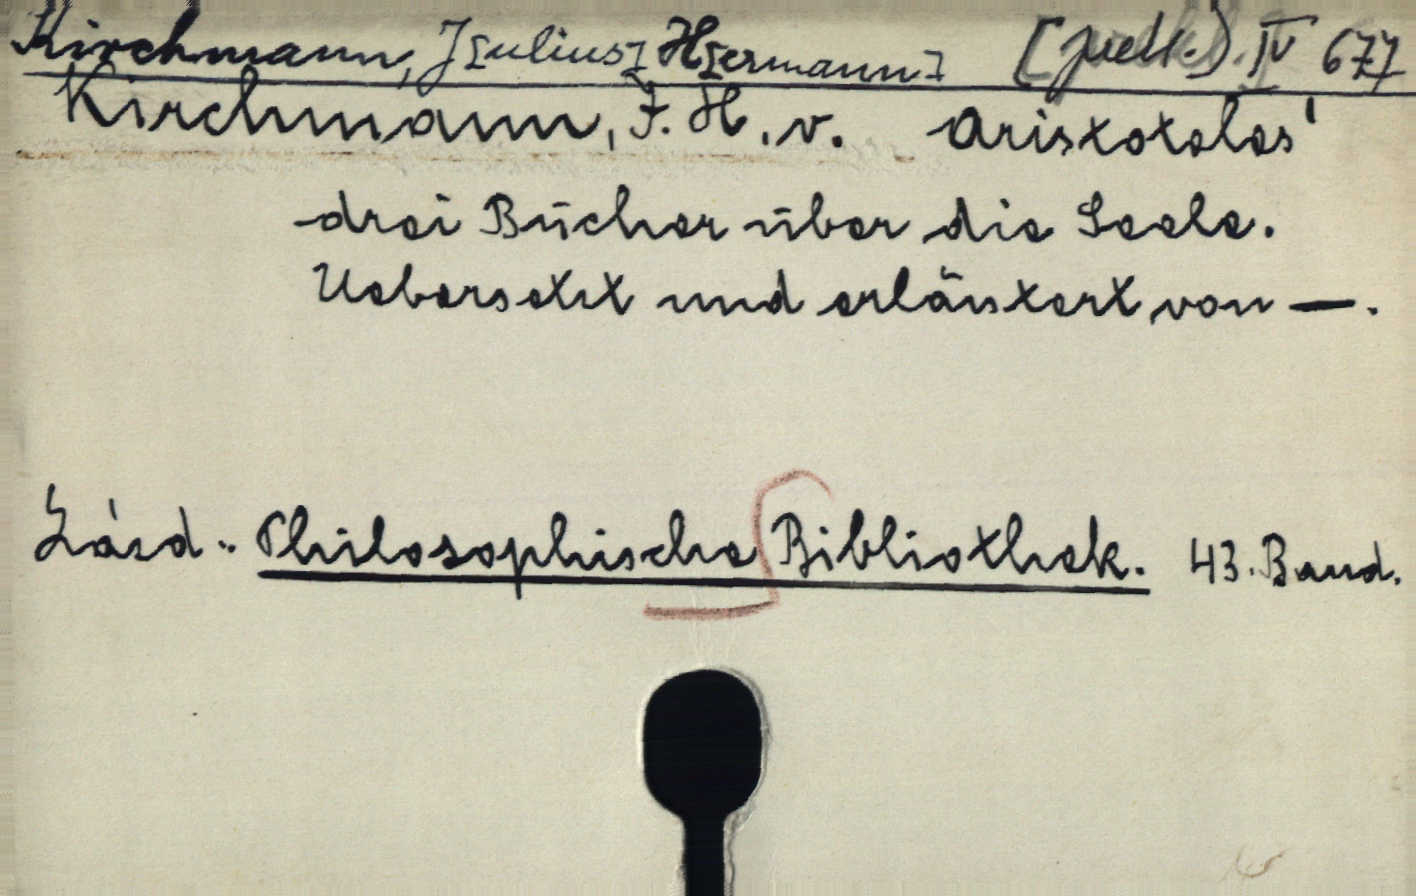 Kirchmann, J[ulius] H[ermann] IV 677
Kirchmann, J. H. v. Aristoteles'
drei Bücher über die Seele.
Uebersetzt und erläutert von —.
Lásd: Philosophische Bibliothek. 43. Band.